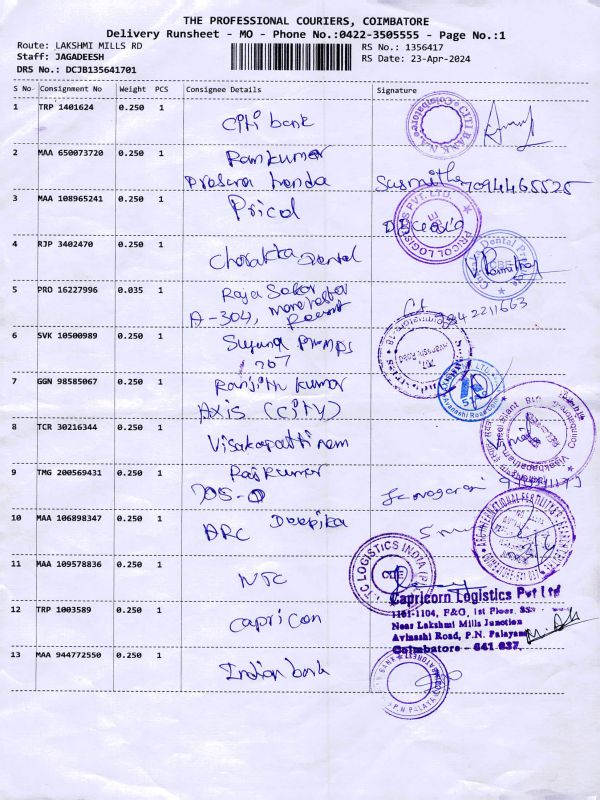 THE PROFESSIONAL COURIERS, COIMBATORE
Delivery Runsheet - MO - Phone No.:0422-3505555 - Page No.:1
Route: LAKSHMI MILLS RD
RS No.: 1356417
Staff: JAGADEESH
RS Date: 23-Apr-2024
DRS No.: DCJB135641701
S No Consignment No Weight PCS Consignee Details Signature
1 TRP 1401624 0.250 1 Citi bank
CITI BANK N.A.
Coimbatore
2 MAA 650073720 0.250 1 Ramkumar
Prasara 7094465525
3 MAA 108965241 0.250 1 Pricol
PRICOL LOGISTICS PVT. LTD.
4 RJP 3402470 0.250 1 Dental
5 PRO 16227996 0.035 1 Raja
A-304, 9842211663
6 SVK 10500989 0.250 1 Suguna Pumps
767
7 GGN 98585067 0.250 1 Ranjith kumar
AXIS (CITY)
Avinashi Road
8 TCR 30216344 0.250 1 Visakapattinam
9 TMG 200569431 0.250 1 Rajkumar
705-D
10 MAA 106898347 0.250 1 Deepika
ARC
11 MAA 109578836 0.250 1 NTC
TC LOGISTICS INDIA (P)
CBE
12 TRP 1003589 0.250 1 capricon
Capricorn Logistics Pvt Ltd
1101-1104, F&G, 1st Floor,
Near Lakshmi Mills Junction
Avinashi Road, P.N. Palayam
Coimbatore - 641 037.
13 MAA 944772550 0.250 1 Indian bank